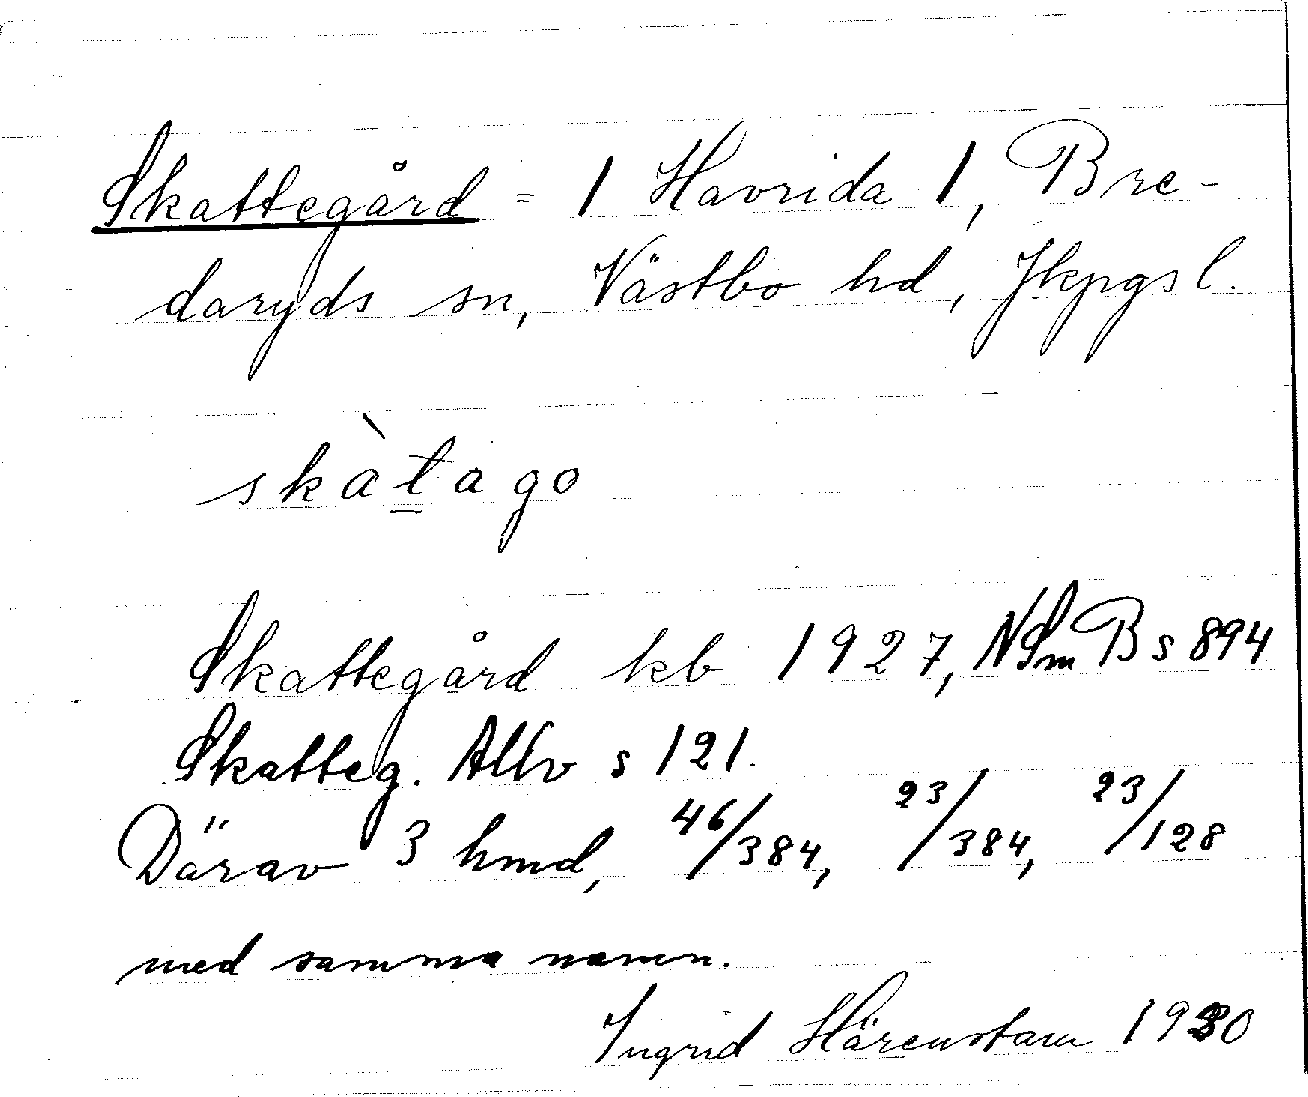 Skattegård = 1 Havrida 1, Bre-
daryds sn, Västbo hd, Jkpgs l.
skàtago
Skattegård kb 1927, NSmB s 894
Skatteg. Allv s 121.
Därav 3 hmd, 46/384, 23/384, 23/128
med samma namn.
Ingrid Härenstam 1930